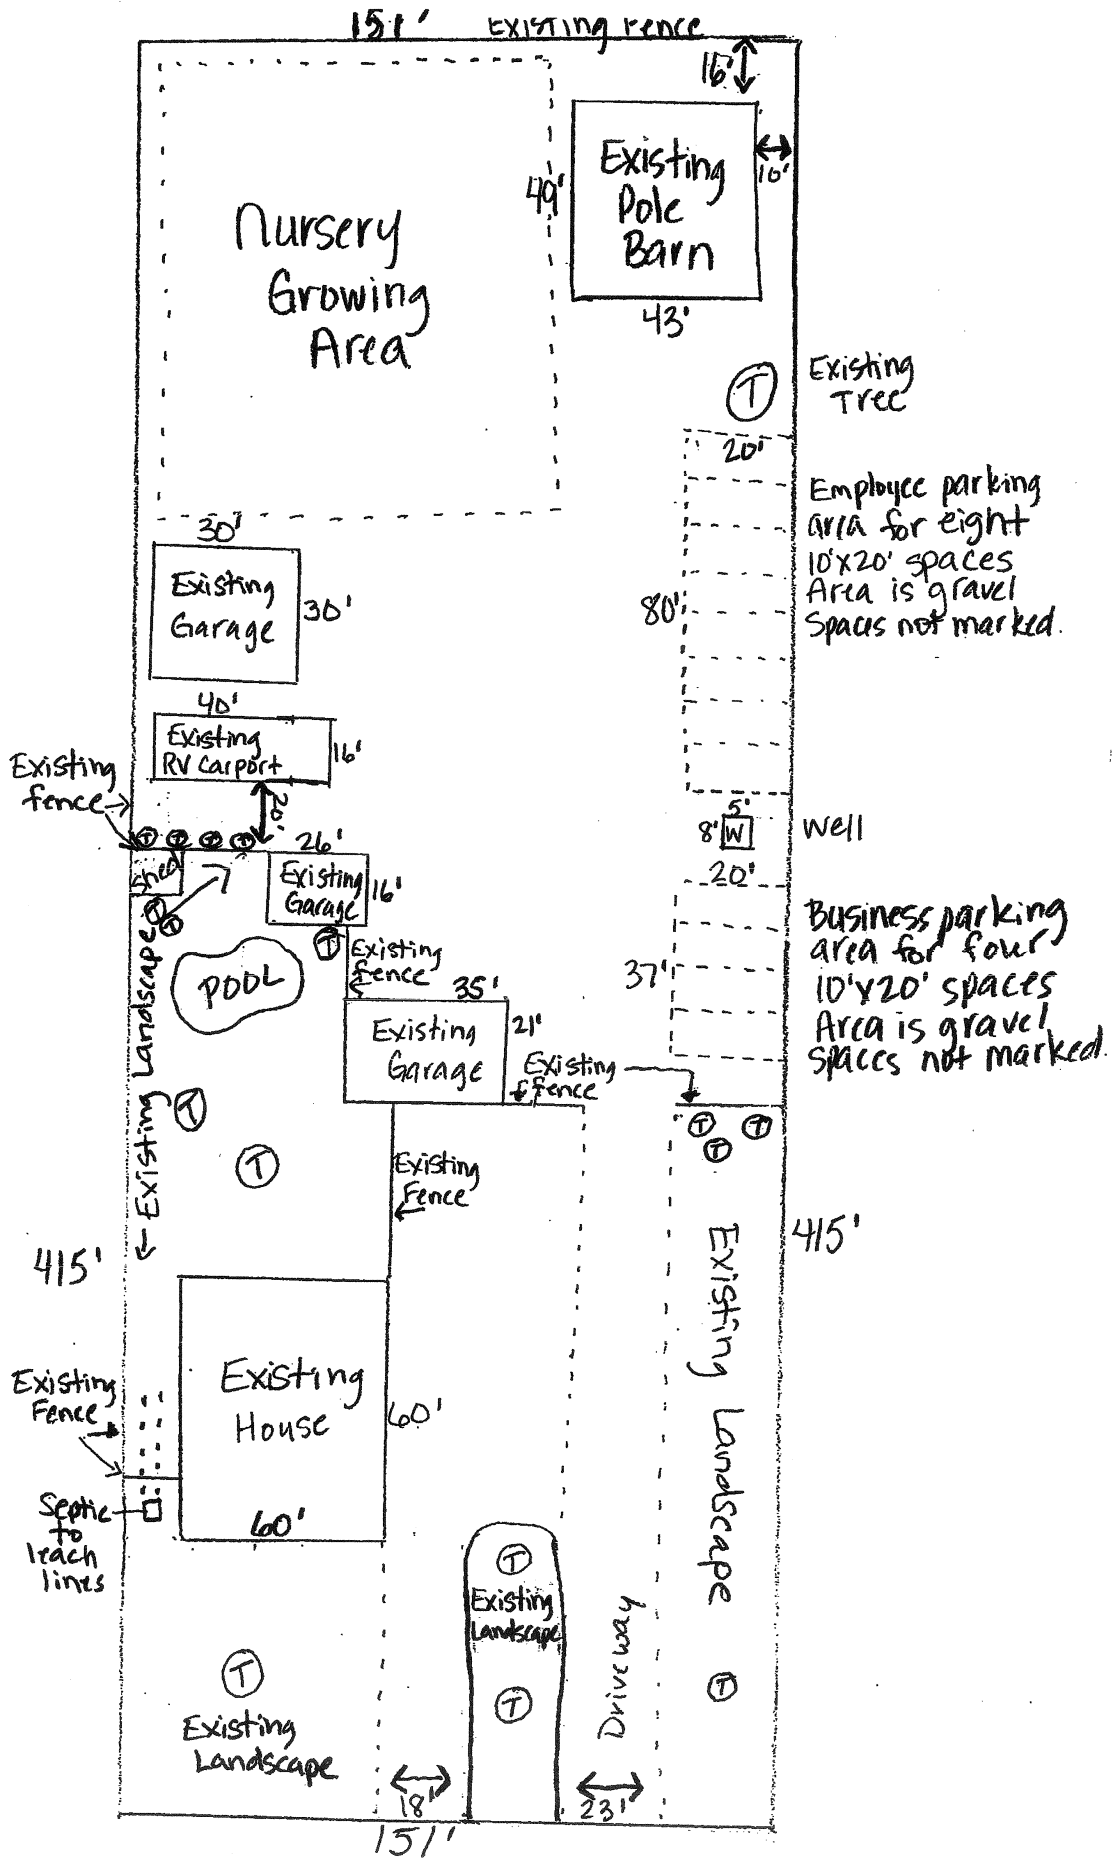 151' Existing Fence
16'
10'
Existing
Pole
Barn
49'
43'
Nursery
Growing
Area
T
Existing
Tree
20'
Employee parking
area for eight
10'x20' spaces
Area is gravel
Spaces not marked.
80'
30'
Existing
Garage
30'
40'
Existing
RV Carport
16'
Existing
fence
20'
T T T T
26'
Shed
Existing
Garage
16'
5'
8' W
Well
20'
Business parking
area for four
10'x20' spaces
Area is gravel
spaces not marked.
37'
T
T
T
Existing
fence
POOL
35'
Existing
Garage
21'
Existing
fence
Existing Landscape
T
T
T T
T
Existing
Fence
415'
415'
Existing Landscape
Existing
House
60'
60'
Existing
Fence
Septic
to
leach
lines
T
Existing
Landscape
T
T
T
Existing
Landscape
Driveway
18'
23'
151'